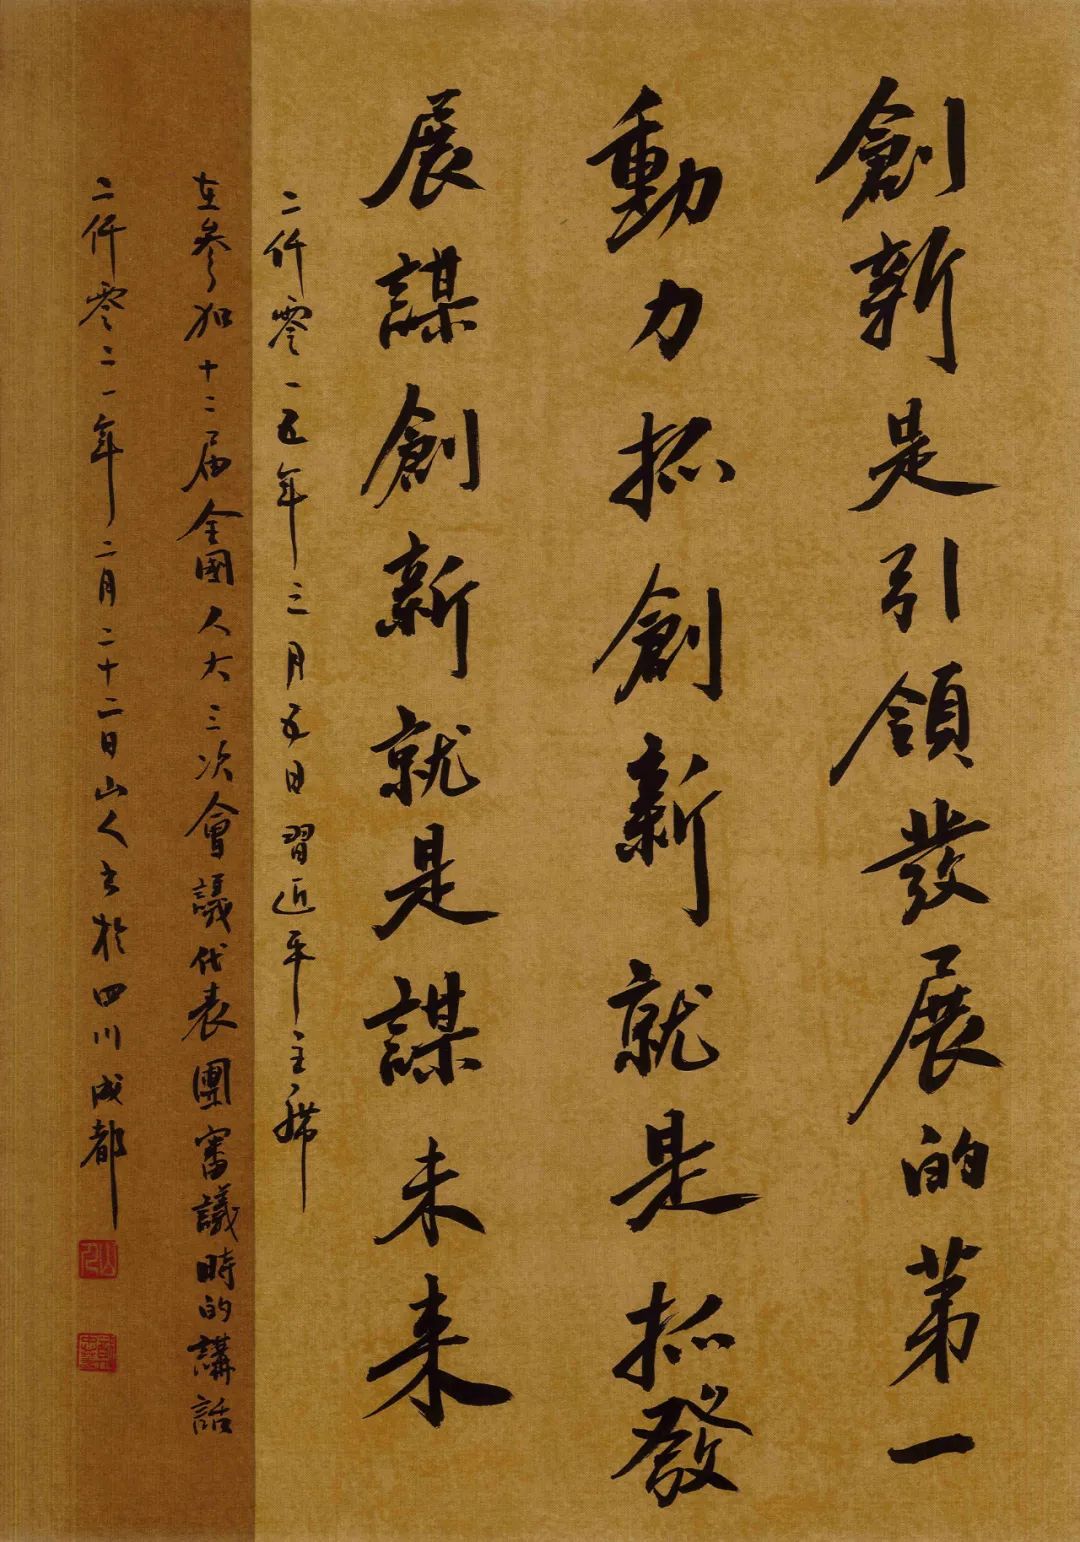 創新是引領發展的第一
動力抓創新就是抓發
展謀創新就是謀未来
二仟零一五年三月五日習近平主席
在參加十二届全國人大三次會議代表團審議時的講話
二仟零二一年二月二十二日山人書於四川成都